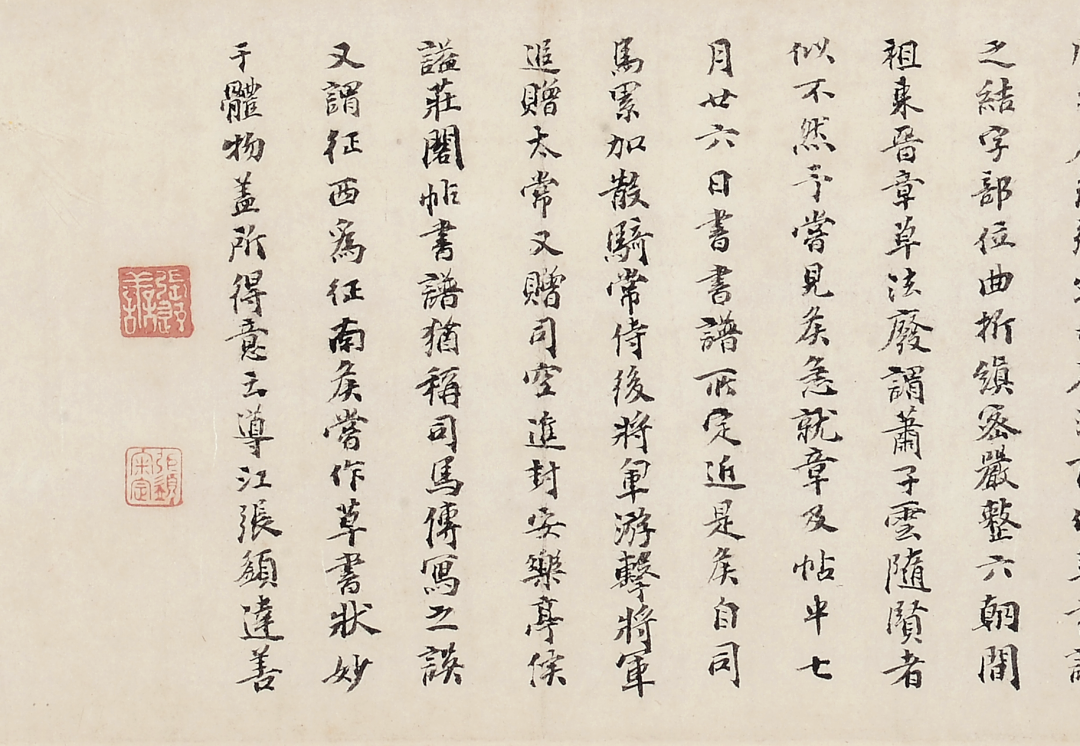 之結字部位曲折縝密嚴整六朝間
祖東晉章草法廢謂蕭子雲隨賢者
似不然予嘗見矦急就章及帖半七
月廿六日書書譜所定近是矦自司
馬累加散騎常侍後將軍游擊將軍
追贈太常又贈司空進封安樂亭侯
謚莊閣帖書譜猶稱司馬傳寫之誤
又謂征西為征南矦嘗作草書狀妙
于體物盖所得意云導江張䪴達善